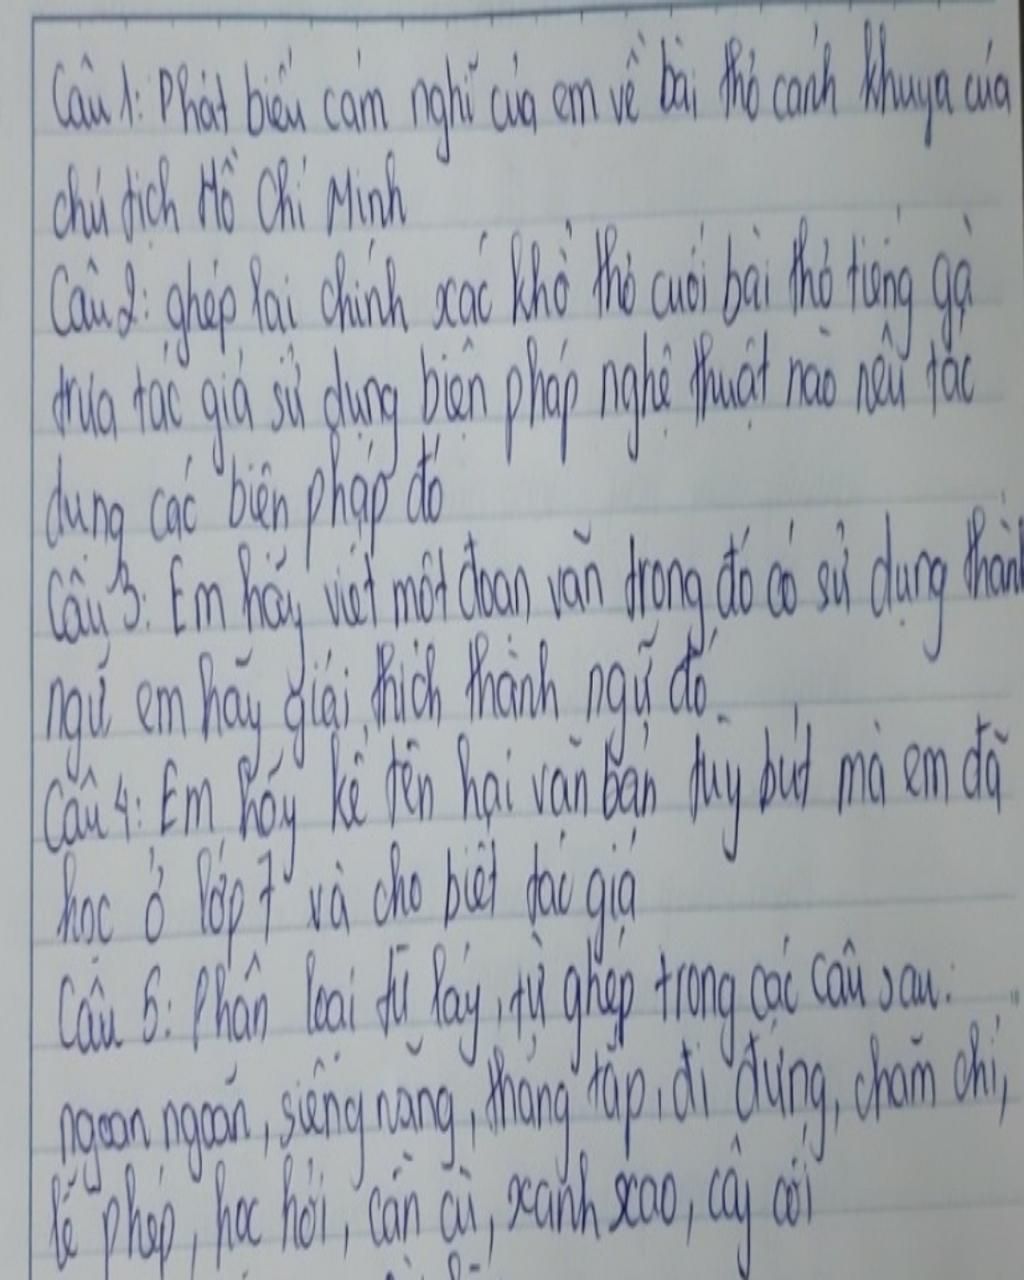 Câu 1: Phát biểu cảm nghĩ của em về bài thơ cảnh khuya của
chủ tịch Hồ Chí Minh
Câu 2: ghép lại chính xác khổ thơ cuối bài thơ tiếng gà
trưa tác giả sử dụng biện pháp nghệ thuật nào nêu tác
dụng các biện pháp đó
Câu 3: Em hãy viết một đoạn văn trong đó có sử dụng thành
ngữ em hãy giải thích thành ngữ đó
Câu 4: Em hãy kể tên hai văn bản tùy bút mà em đã
học ở lớp 7 và cho biết tác giả
Câu 5: Phân loại từ láy, từ ghép trong các câu sau:
ngoan ngoãn, siêng năng, thẳng tắp, đi đứng, chăm chỉ,
lễ phép, học hỏi, cần cù, xanh xao, cây cối